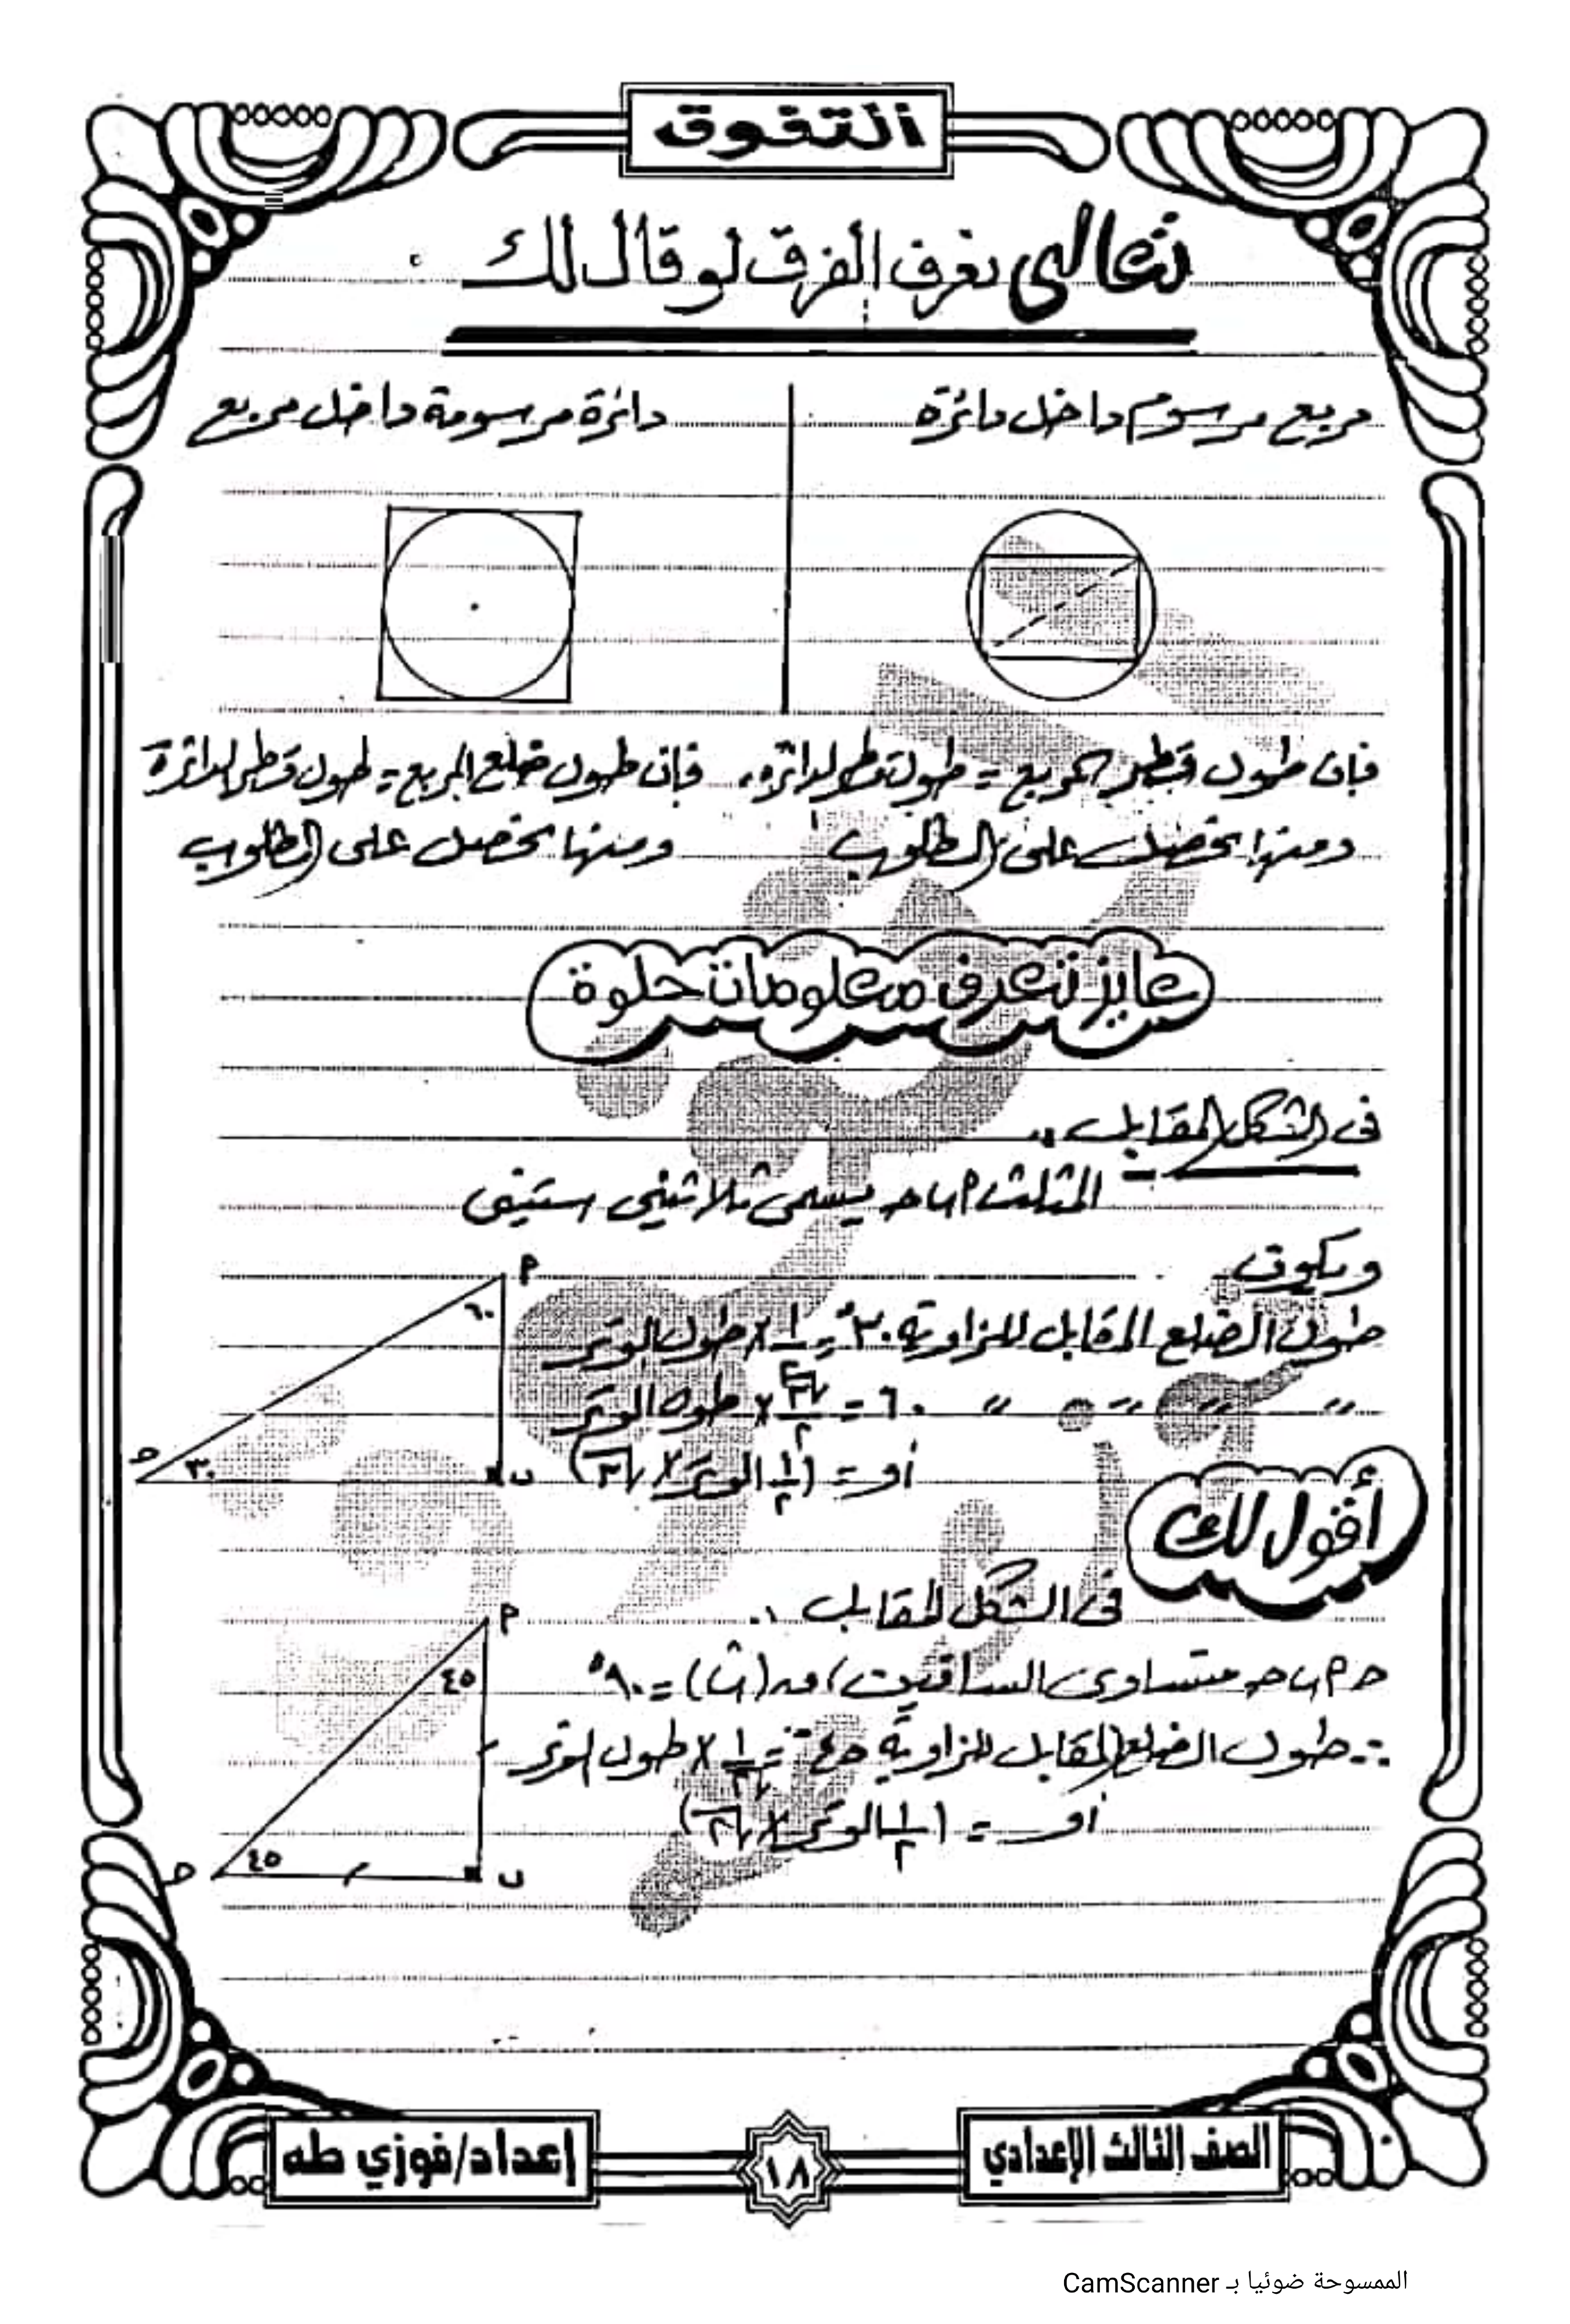 التفوق
تعالى نعرف الفرق لو قال لك
مربع مرسوم داخل دائرة
دائرة مرسومة داخل مربع
فإن طول قطر المربع = طول قطر الدائرة
ومنها نحصل على المطلوب
فإن طول ضلع المربع = طول قطر الدائرة
ومنها نحصل على المطلوب
عايز تعرف معلومات حلوة
فى الشكل المقابل ..
المثلث ٢ ب حـ يسمى ثلاثينى ستينى
ويكون
طول الضلع المقابل للزاوية ٣٠° = ١/٢ × طول الوتر
〃 〃 〃 〃 ٦٠ = √٣/٢ × طول الوتر
أو = (١/٢ الوتر × √٣)
٢
٦٠
حـ
٣٠
ب
أقول لك
فى الشكل المقابل ..
٢ ب حـ متساوى الساقين ، ق (ب) = ٩٠°
∴ طول الضلع المقابل للزاوية ٤٥° = ١/√٢ × طول الوتر
أو = (١/٢ الوتر × √٢)
٢
٤٥
حـ
٤٥
ب
الصف الثالث الإعدادي
١٨
إعداد/فوزي طه
الممسوحة ضوئيا بـ CamScanner